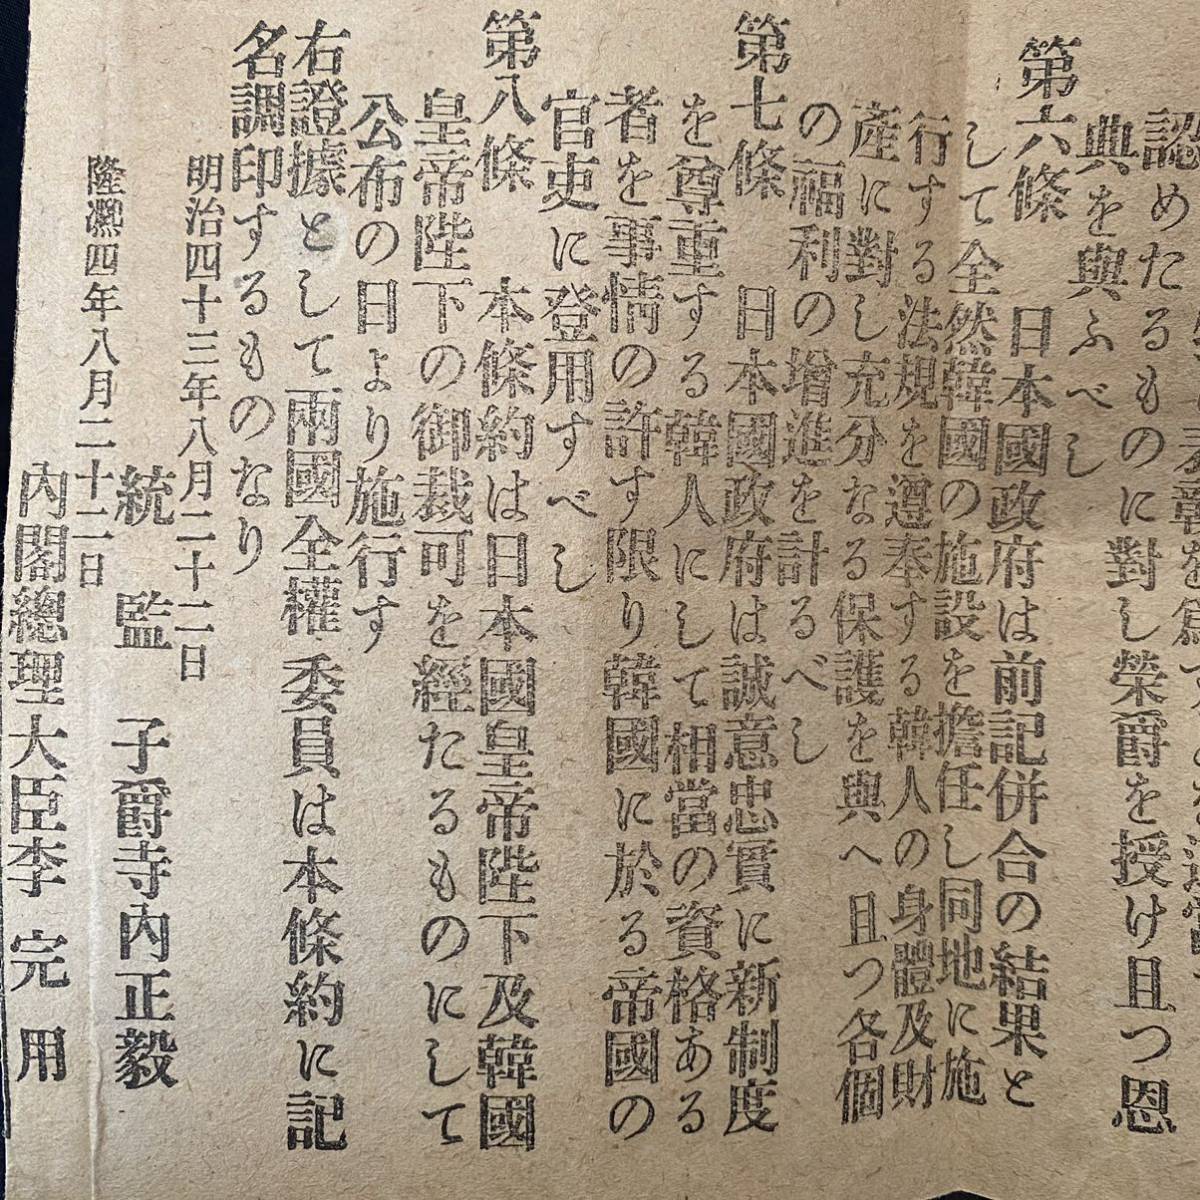 認めたるものに對し榮爵を授け且つ恩
典を與ふべし
第六條　日本國政府は前記併合の結果と
して全然韓國の施設を擔任し同地に施
行する法規を遵奉する韓人の身體及財
產に對し充分なる保護を與へ且つ各個
の福利の增進を計るべし
第七條　日本國政府は誠意忠實に新制度
を尊重する韓人にして相當の資格ある
者を事情の許す限り韓國に於る帝國の
官吏に登用すべし
第八條　本條約は日本國皇帝陛下及韓國
皇帝陛下の御裁可を經たるものにして
公布の日より施行す
右證據として兩國全權委員は本條約に記
名調印するものなり
明治四十三年八月二十二日
統監　子爵寺內正毅
隆凞四年八月二十二日
內閣總理大臣李完用